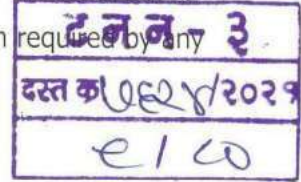 required by any
ट न न - ३
दस्त क्र ७६२४/२०२१
९/८०